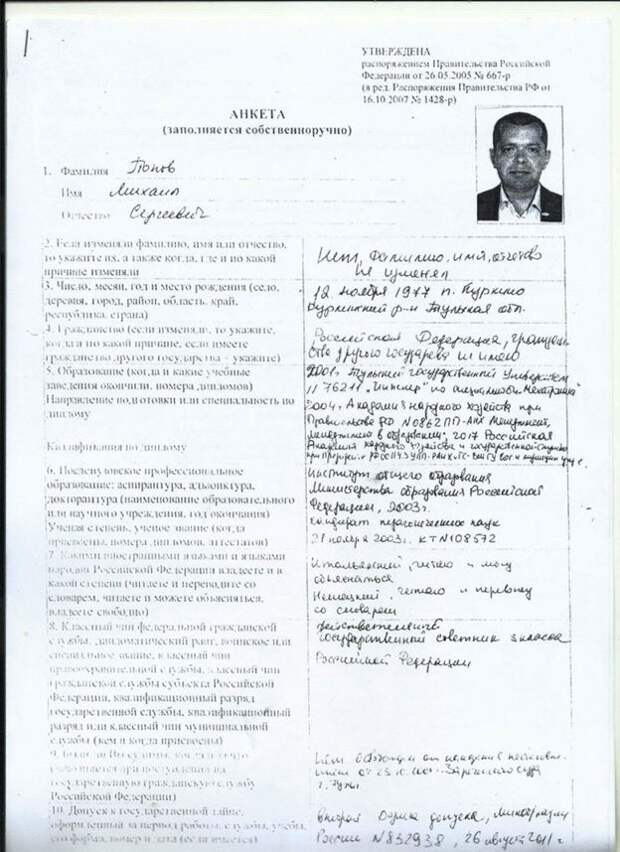 1
УТВЕРЖДЕНА
распоряжением Правительства Российской
Федерации от 26.05.2005 № 667-р
(в ред. Распоряжения Правительства РФ от
16.10.2007 № 1428-р)
АНКЕТА
(заполняется собственноручно)
1. Фамилия Попов
Имя Михаил
Отчество Сергеевич
2. Если изменяли фамилию, имя или отчество,
то укажите их, а также когда, где и по какой
причине изменяли
Нет, фамилию, имя, отчество
не изменял
3. Число, месяц, год и место рождения (село,
деревня, город, район, область, край,
республика, страна)
12 ноября 1977 п. Куркино
Куркинский р-н Тульская обл.
4. Гражданство (если изменяли, то укажите,
когда и по какой причине, если имеете
гражданство другого государства – укажите)
Российская Федерация, гражданс
ства другого государства не имею
5. Образование (когда и какие учебные
заведения окончили, номера дипломов)
Направление подготовки или специальность по
диплому
Квалификация по диплому
2001г. Тульский государственный Университет
"Инженер" по специальности
2004г. Академия народного хозяйства при
Правительстве РФ Менеджмент,
в образовании, 2017 Российская
Академия народного хозяйства и государственной службы
при
6. Послевузовское профессиональное
образование: аспирантура, адъюнктура,
докторантура (наименование образовательного
или научного учреждения, год окончания)
Ученая степень, ученое звание (когда
присвоены, номера дипломов, аттестатов)
Институт общего образования
Министерства образования Российской
Федерации, 2003г.
кандидат педагогических наук
21 ноября 2003г. КТ N108572
7. Какими иностранными языками и языками
народов Российской Федерации владеете и в
какой степени (читаете и переводите со
словарем, читаете и можете объясняться,
владеете свободно)
читаю и могу
объясняться
Немецкий, читаю и перевожу
со словарем
8. Классный чин федеральной гражданской
службы, дипломатический ранг, воинское или
специальное звание, классный чин
правоохранительной службы, классный чин
гражданской службы субъекта Российской
Федерации, квалификационный разряд
государственной службы, квалификационный
разряд или классный чин муниципальной
службы (кем и когда присвоены)
Действительный
государственный советник 3 класса
Российской Федерации
9. Были ли Вы судимы, когда и за что
при поступлении на
государственную гражданскую службу
Российской Федерации)
от наказания
от суда
г. Тулы
10. Допуск к государственной тайне,
оформленный за период работы, службы, учебы,
его форма, номер и дата (если имеется)
Вторая форма допуска,
России N832938, 26 августа 2011 г.